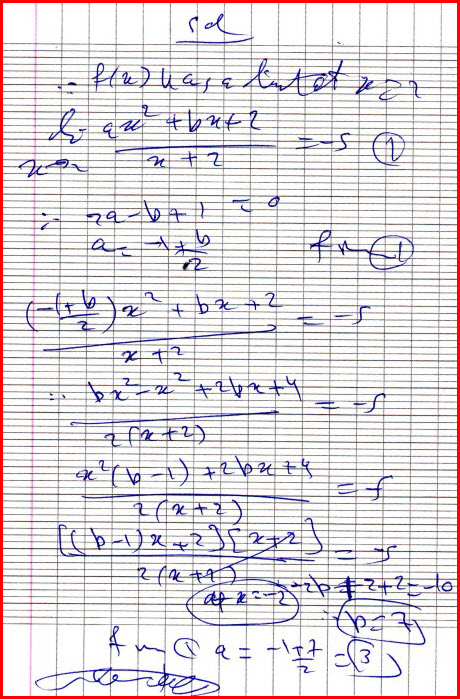 ∵ f(x) has a limit at x =
ax² + bx + 2 / x + 2 = -5 ①
∴ 2a - b + 1 = 0
a = -1 + b / 2
(-1 + b / 2) x² + bx + 2 / x + 2 = -5
∴ bx² - x² + 2bx + 4 / 2(x + 2) = -5
x²(b - 1) + 2bx + 4 / 2(x + 2) = -5
[(b - 1)x + 2][x + 2] / 2(x + 2) = -5
at x = -2
-2b + 2 + 2 = -10
∴ b = 7
from ① a = -1 + 7 / 2 = 3